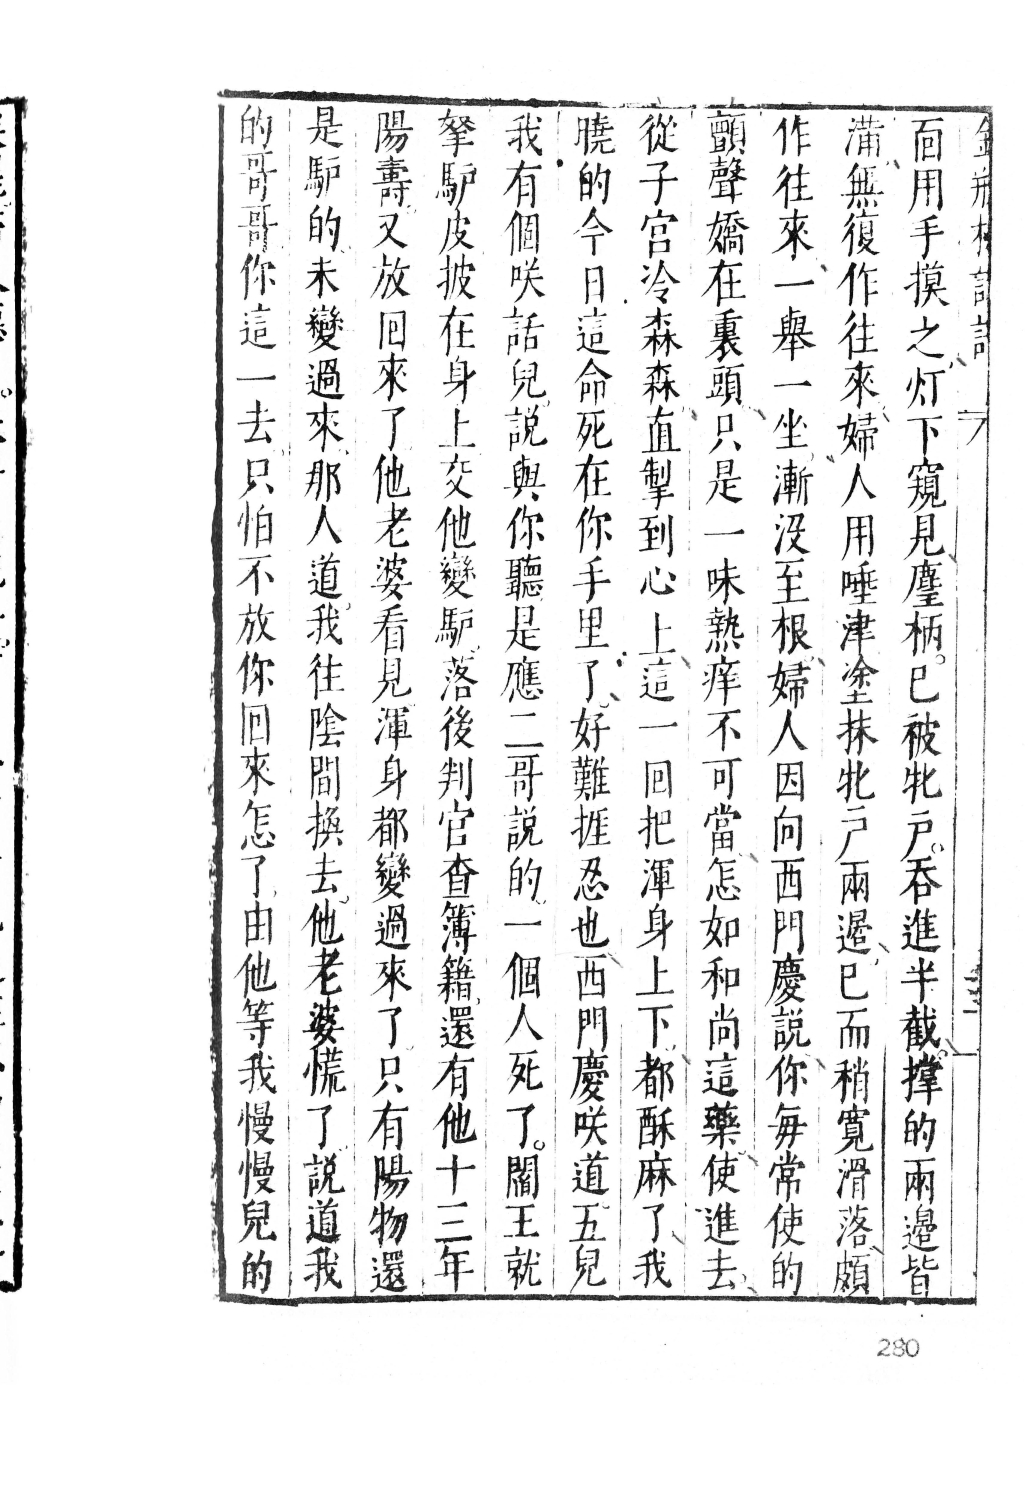 金瓶梅詞話
面用手摸之灯下窺見麈柄已被牝戸吞進半截撑的兩邉皆
滿無復作往來婦人用唾津塗抹牝戸兩邉已而稍寛滑落頗
作往來一舉一坐漸没至根婦人因向西門慶説你毎常使的
顫聲嬌在裏頭只是一味熱痒不可當怎如和尚這藥使進去
從子宫冷森森直掣到心上這一囘把渾身上下都酥麻了我
曉的今日這命死在你手里了好難捱忍也西門慶咲道五兒
我有個咲話兒説與你聽是應二哥説的一個人死了閻王就
拏馿皮披在身上交他變馿落後判官查簿籍還有他十三年
陽壽又放囘來了他老婆看見渾身都變過來了只有陽物還
是馿的未變過來那人道我往隂間換去他老婆慌了説道我
的哥哥你這一去只怕不放你囘來怎了由他等我慢慢兒的
280